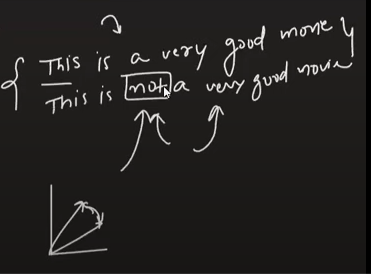 { This is a very good movie }
This is not a very good movie